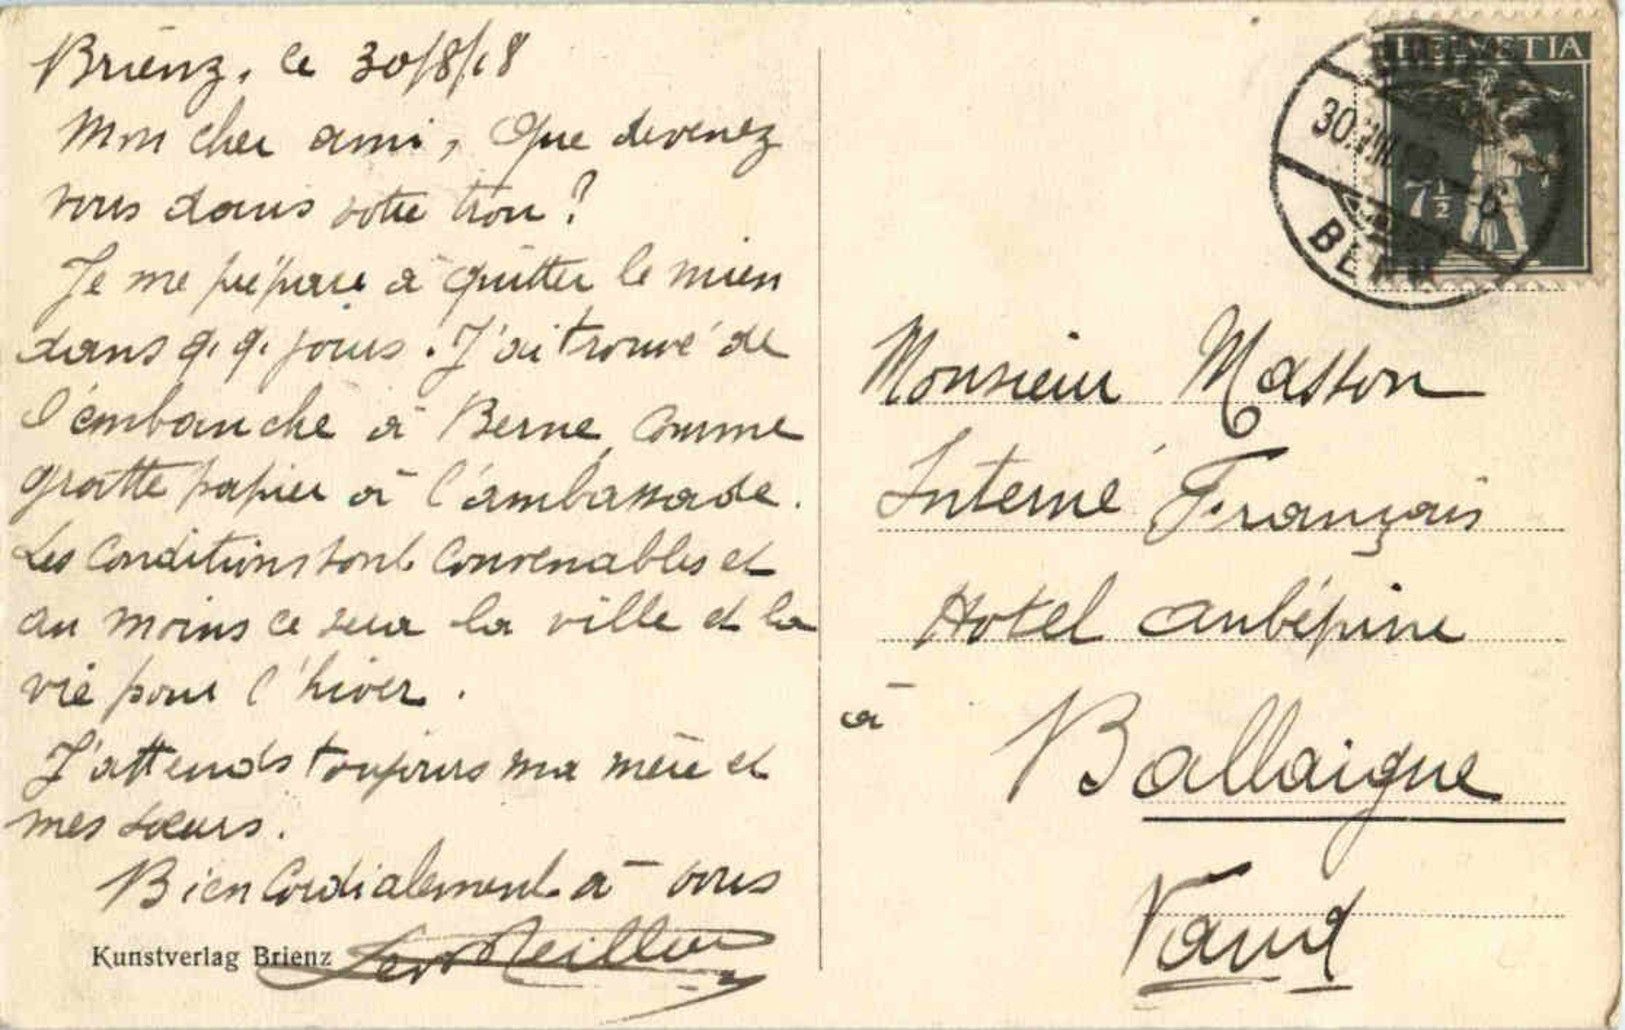 Brienz, le 30/8/18
Mon cher ami, Que devenez
vous dans votre trou ?
Je me prépare à quitter le mien
dans q.q. jours. J'ai trouvé de
l'embauche à Berne, comme
gratte papier à l'ambassade.
Les conditions sont convenables et
au moins ce sera la ville et la
vie pour l'hiver.
J'attends toujours ma mère et
mes sœurs.
Bien Cordialement à vous
Kunstverlag Brienz
HELVETIA
7½
30.VIII.
BERN
Monsieur Masson
Interné Français
Hotel Aubépine
à Ballaigue
Vaud